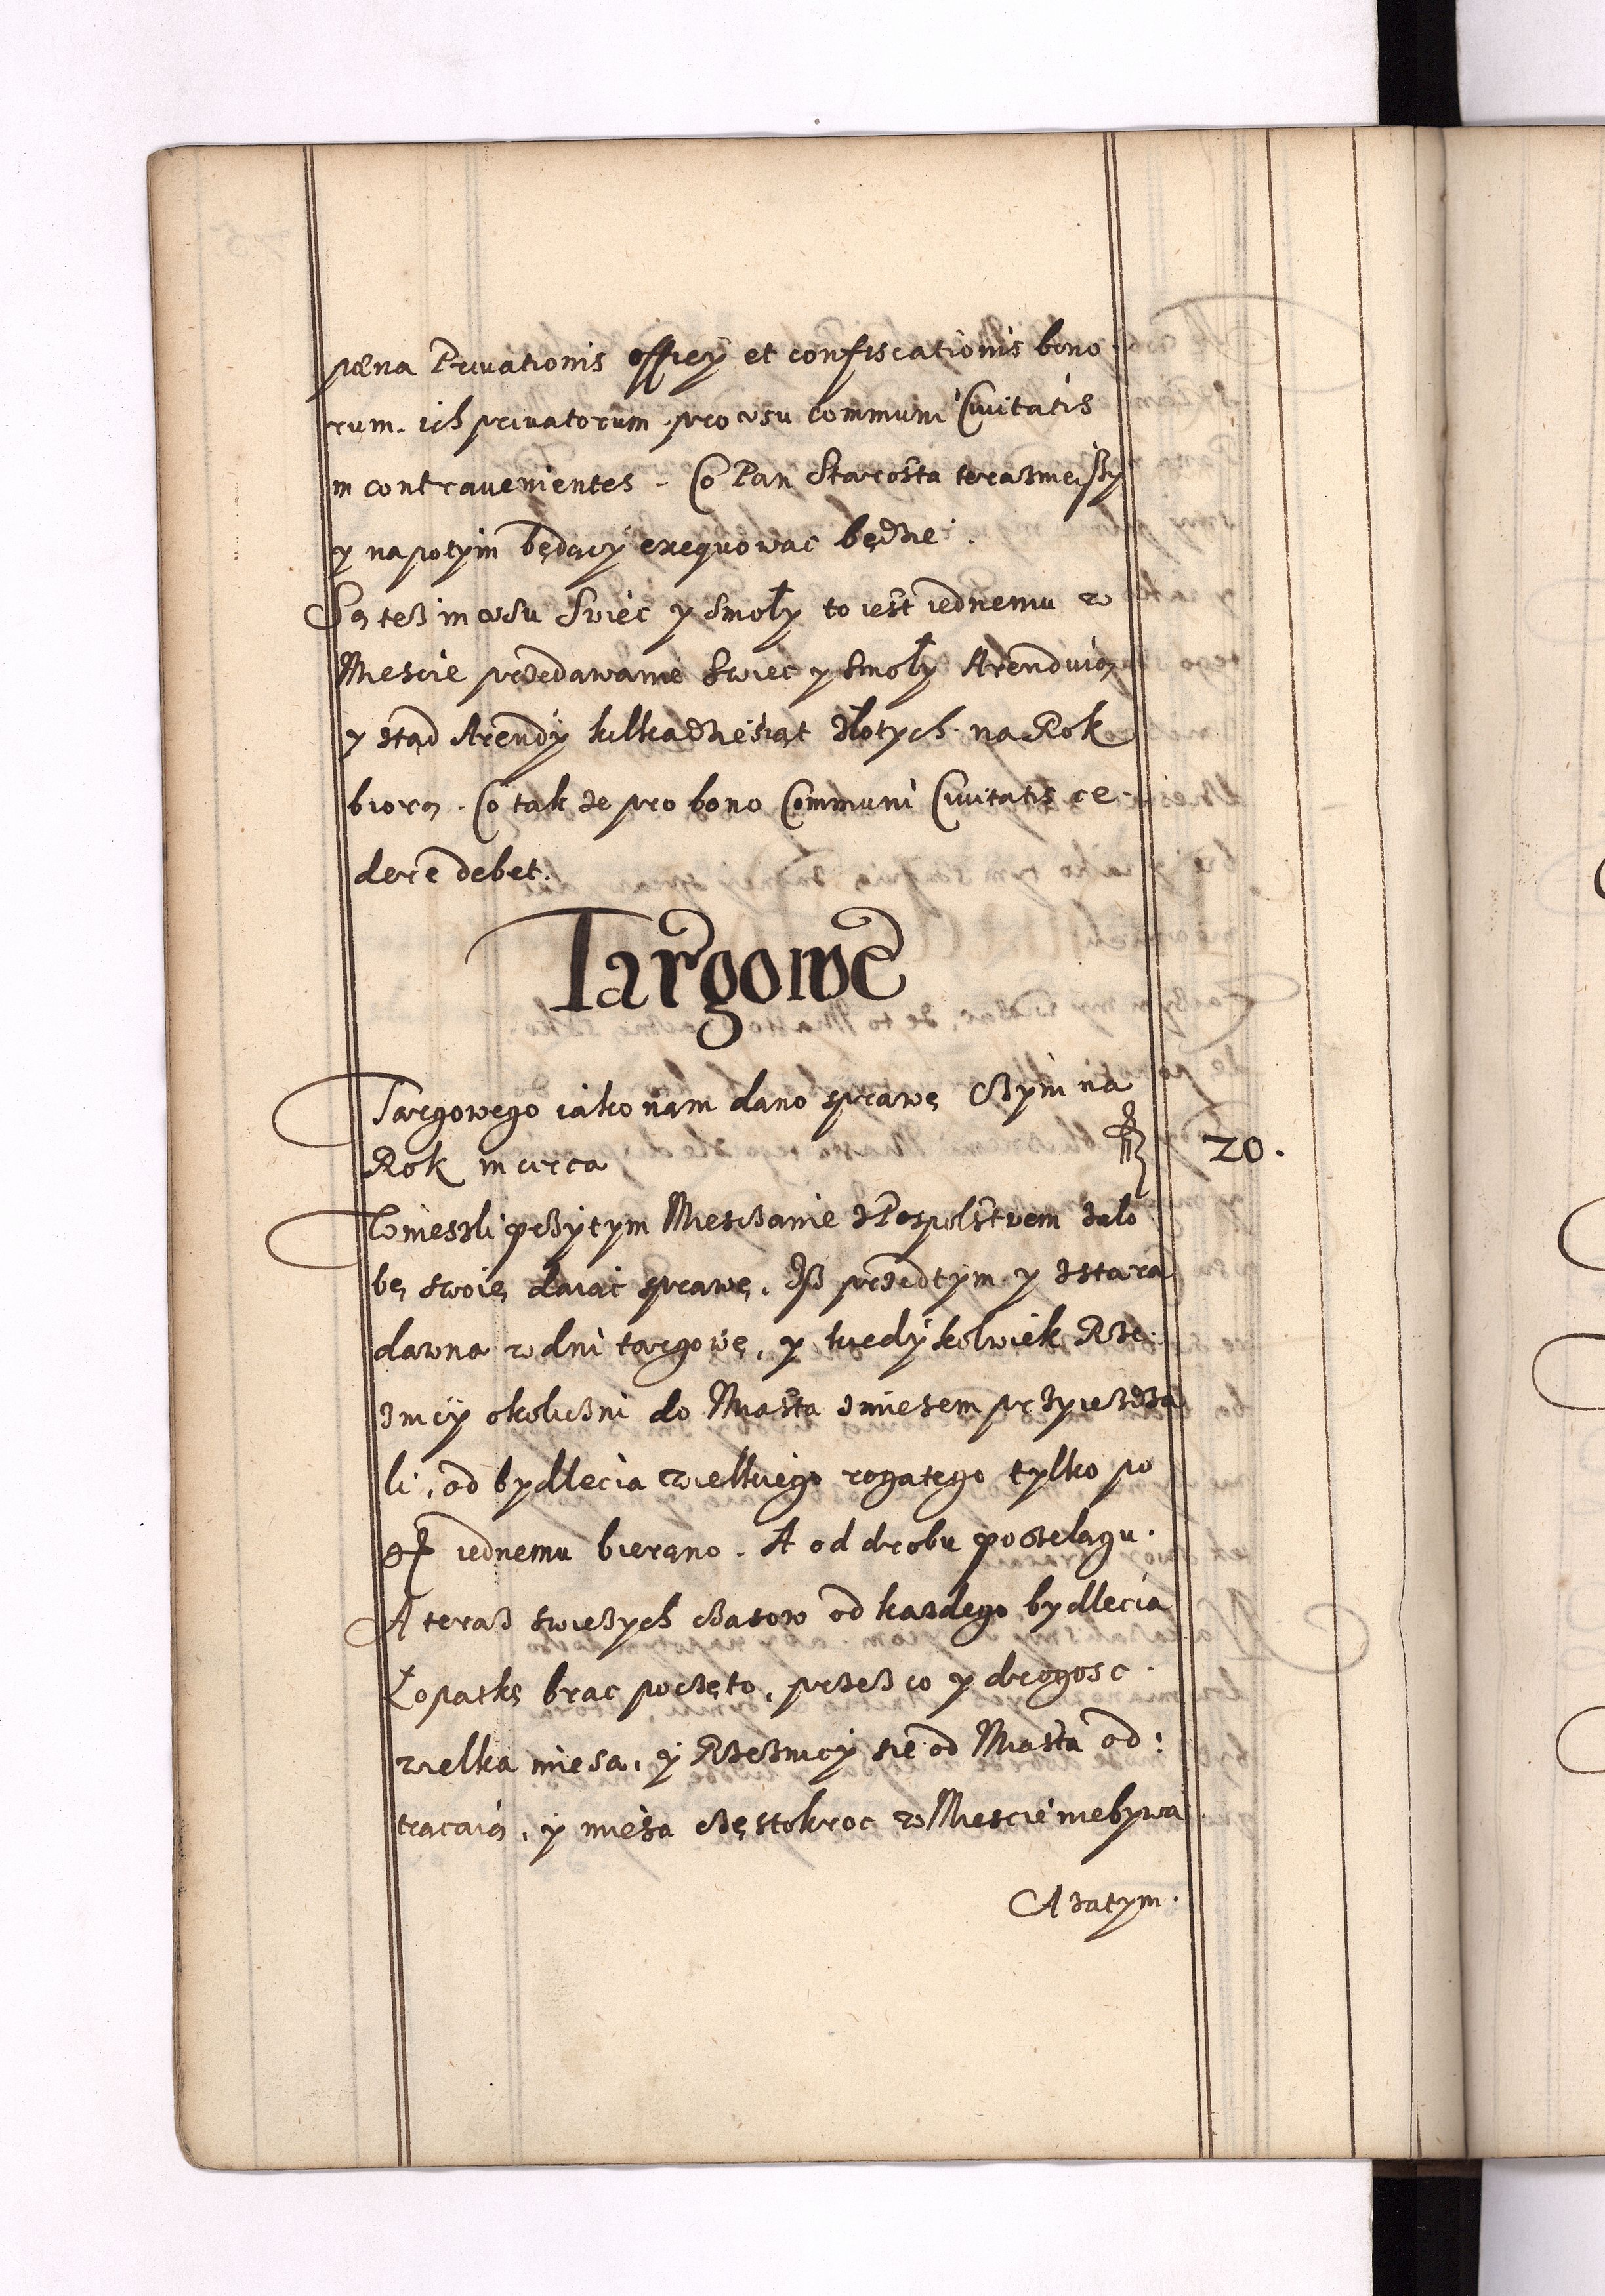 pœna Priuationis officÿ et confiscationis bono
rum. ich priuatorum pro vsu communi Ciuitatis
in contrauenientes. Co Pan Starosta terazneiſzy
y napotym będący exequowac będzie.
Są tesz in vsu Swiec y Smoły to iest iednemu w
Miescie przedawanie Swiec y Smoły Arenduią
y ztąd Arendy kilkadziesiąt złotych na Rok
biorą. Co tak ze pro bono Communi Ciuitatis ce-
dere debet.
Targowe
Targowego iako nam dano sprawę czyni na
Rok in circa fl 20.
Wniesli przytym Miesczanie z Pospolstwem zalo
bę swoię daiąc sprawę. Isz przedtym y zstara
dawna w dni targowe, y kiedykolwiek Rze-
znicy okoliczni do Miasta z miesem przyiezdza
li, od bydlecia wielkiego rogatego tylko po
gr iednemu bierano. A od drobu po szelągu.
A terasz swieszych czasow od kazdego bydlecia
Łopatkę brac poczęto, przesz co y drogosc
wielka miesa, y Rzeznicy sie od Miasta od:
tracaią, y miesa częstokroc w Miescie niebywa
A zatym.